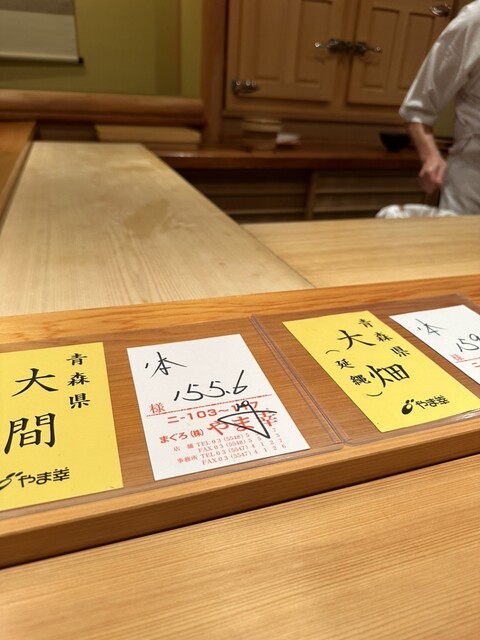 青森県
大間
やま幸
本
155.6
様
ニ-103~107
まぐろ(株) やま幸
店舗 TEL 03 (5548)
FAX 03 (5548)
事務所 TEL 03 (5547)
FAX 03 (5547)
青森県
大畑
(延縄)
やま幸
本
様